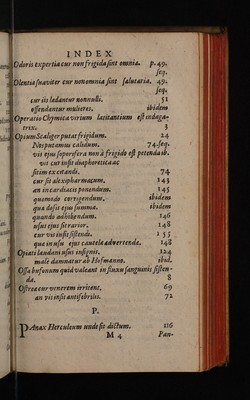 INDEX
Odoris expertia cur non frigida sint omnia. p.49.
seq.
Olentia suaviter cur non omnia sint salutaria. 49.
seq.
cur iis ledantur nonnulli. 51
offenduntur mulieres. ibidem
Operatio Chymica virium latitantium est indaga-
trix. 3
Opium Scaliger putat frigidum. 24
Nos putamus calidum. 74. seq.
vis ejus soporifera non à frigido est petenda ib.
vis cur insit diaphoretica ac
sitim excitandi. 74
cur sit alexipharmacum. 143
an in cardiacis ponendum. 145
quomodo corrigendum. ibidem
qua dosis ejus summa. ibidem
quando adhibendum. 146
usus ejus serarior. 148
cur vis insit sistendi. 155
qua in usu ejus cautela advertenda. 148
Opiati laudani usus insignis. 124
male damnatur ab Hofmanno. ibid.
Ossa bufonum quid valeant in fluxu sanguinis sisten-
da. 8
Ostrea cur venerem irritent. 69
an vis insit antifebrilis. 72
P.
PAnax Herculeum unde sic dictum. 116
M 4 Pan-